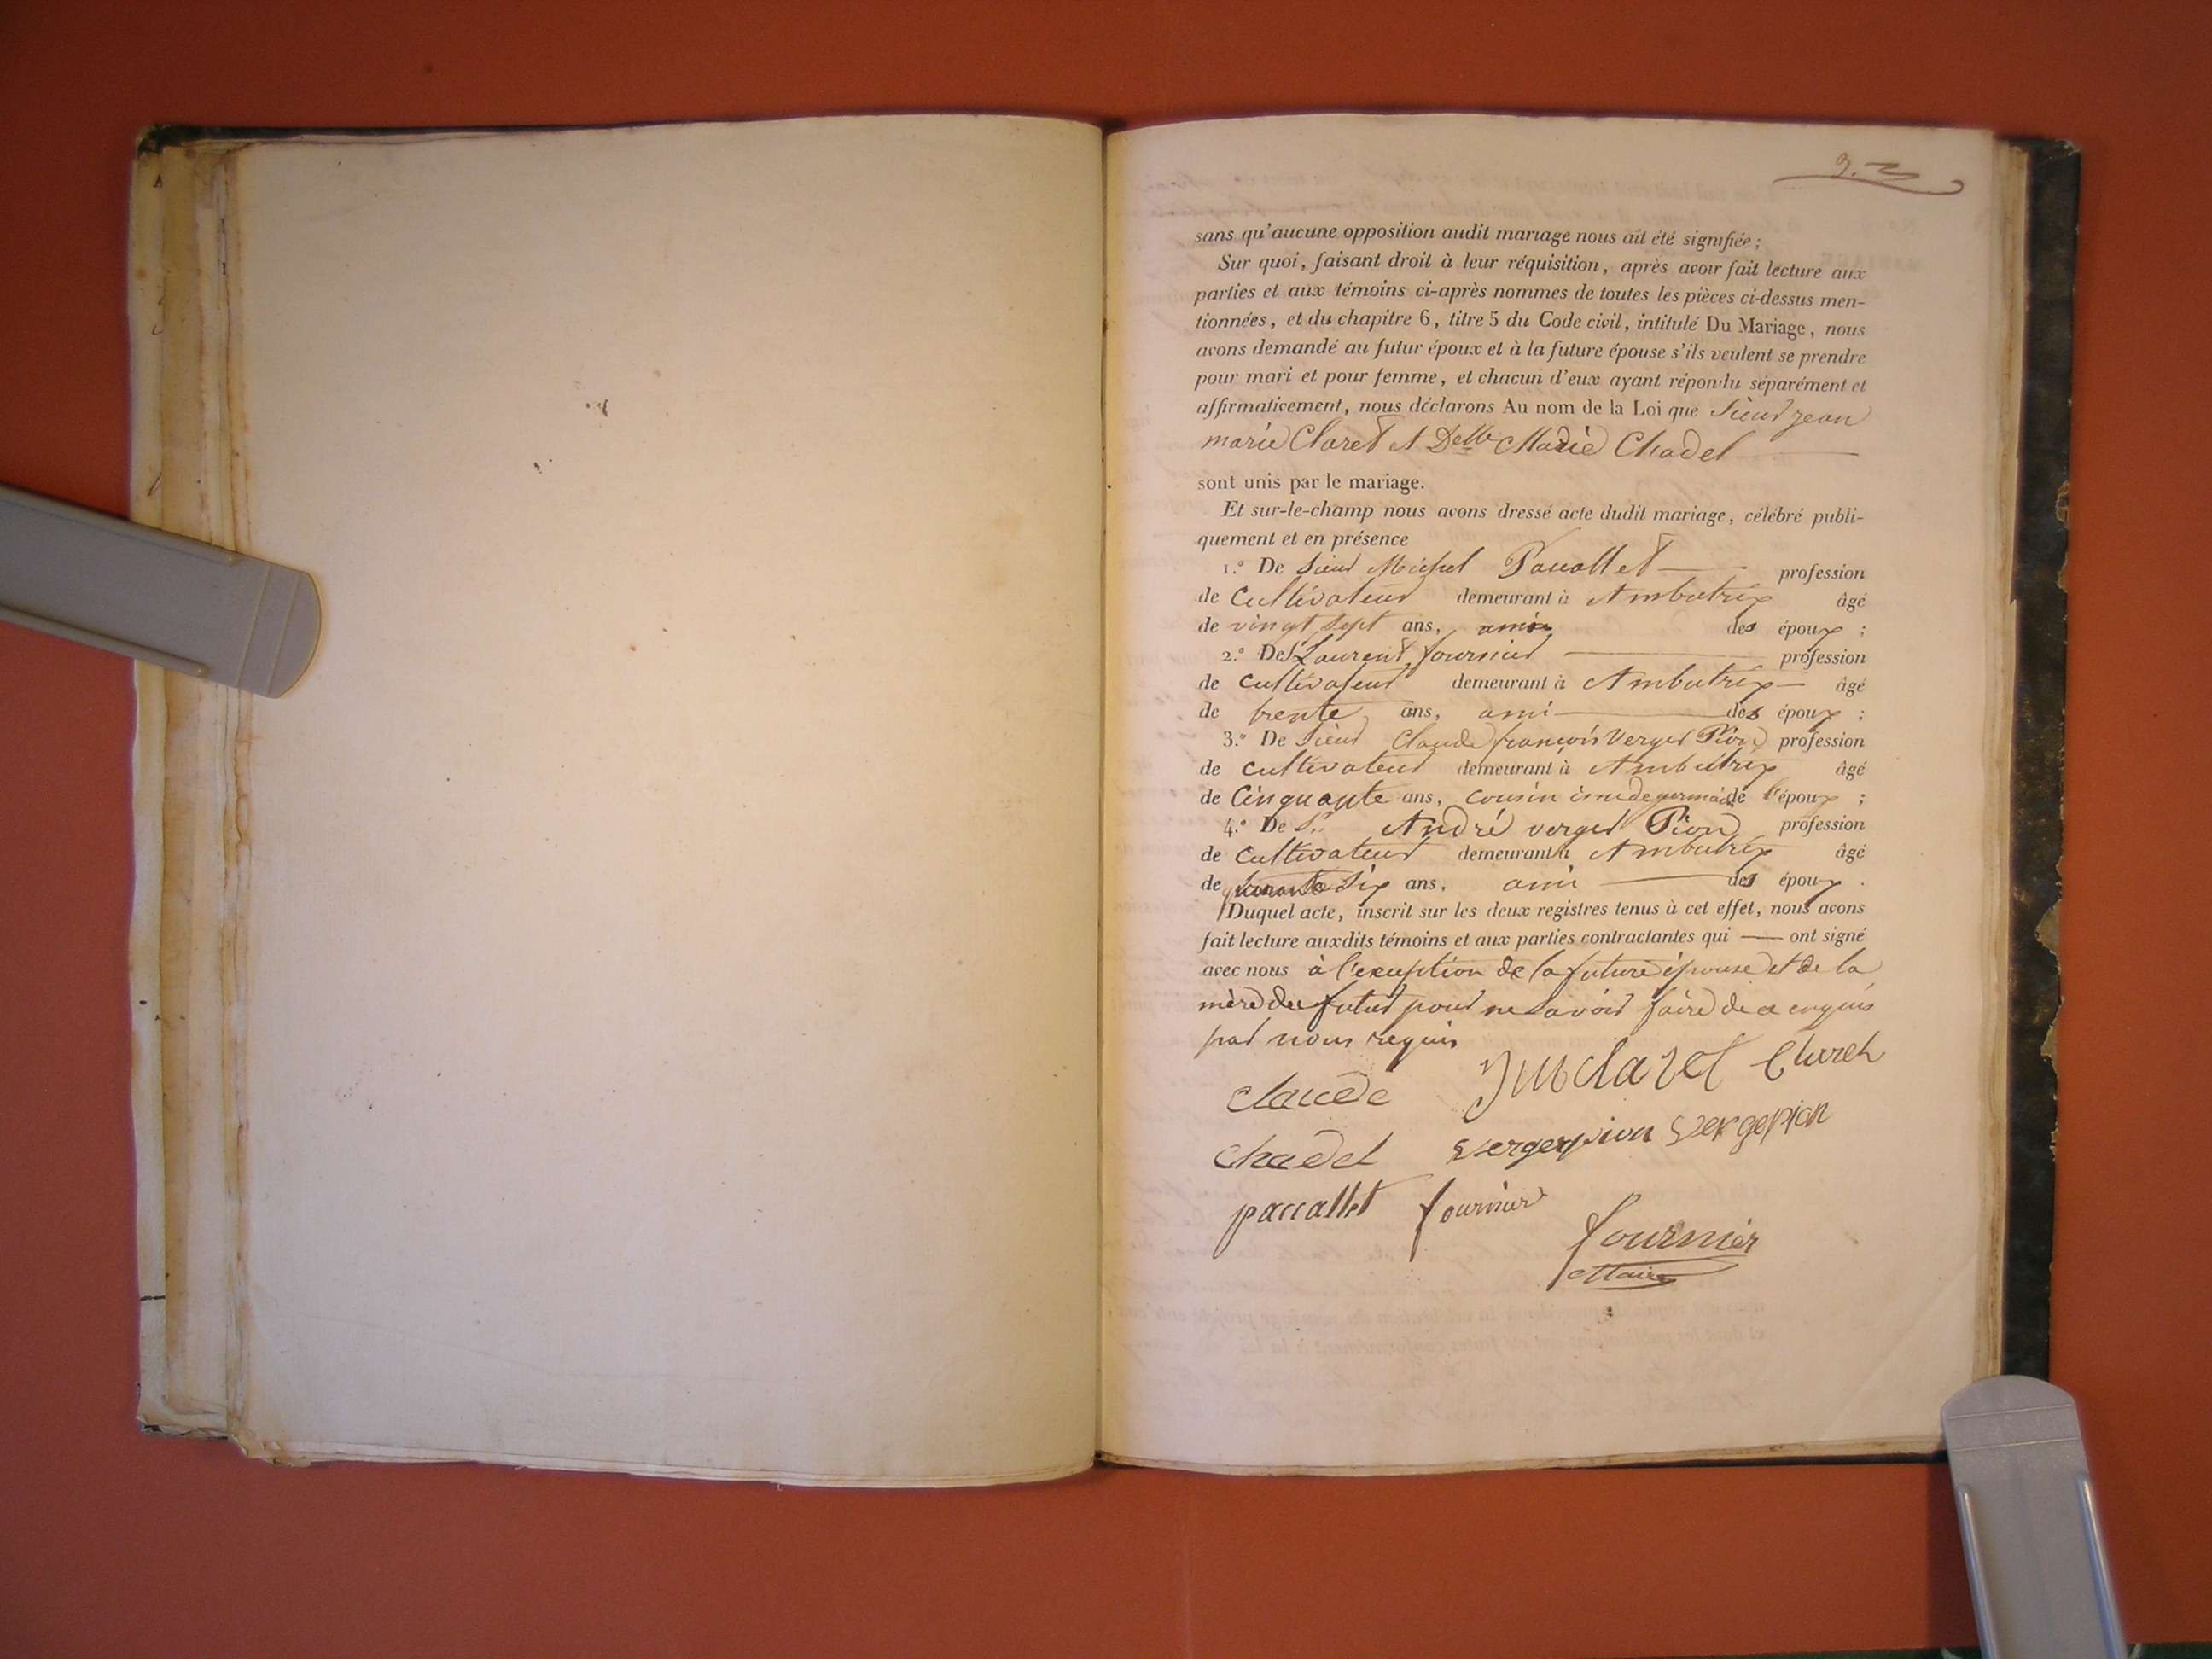 sans qu'aucune opposition audit mariage nous ait été signifiée ;
Sur quoi, faisant droit à leur réquisition, après avoir fait lecture aux
parties et aux témoins ci-après nommes de toutes les pièces ci-dessus men-
tionnées, et du chapitre 6, titre 5 du Code civil, intitulé Du Mariage, nous
avons demandé au futur époux et à la future épouse s'ils veulent se prendre
pour mari et pour femme, et chacun d'eux ayant répondu séparément et
affirmativement, nous déclarons Au nom de la Loi que Sieur jean
marie Claret et Delle Marie Chadel
sont unis par le mariage.
Et sur-le-champ nous avons dressé acte dudit mariage, célébré publi-
quement et en présence
1.° De Sieur Michel Paccallet profession
de Cultivateur demeurant à Ambutrix âgé
de vingt sept ans, ami des époux ;
2.° De Sr Laurent fournier profession
de Cultivateur demeurant à Ambutrix âgé
de trente ans, ami des époux ;
3.° De Sieur Claude françois Verger Pion profession
de Cultivateur demeurant à Ambutrix âgé
de Cinquante ans, cousin issu de germain de l'époux ;
4.° De Sr. André verger Pion profession
de Cultivateur demeurant à Ambutrix âgé
de quarante Six ans, ami des époux .
Duquel acte, inscrit sur les deux registres tenus à cet effet, nous avons
fait lecture auxdits témoins et aux parties contractantes qui — ont signé
avec nous à l'exception de la future épouse et de la
mère du futur pour ne savoir faire de ce enquis
par nous requis
claude jm claret Claret
chadel vergerpion vergepion
paccallet fournier
fournier
Maire